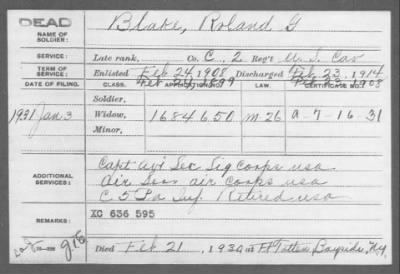 DEAD
NAME OF SOLDIER:
Blake, Roland G
SERVICE:
Late rank, Co. C, 2 Reg't U.S. Cav
TERM OF SERVICE:
Enlisted Feb 24, 1908 Discharged Feb 23, 1914
Feb 24, 1899 Feb 23 1908
DATE OF FILING. CLASS. APPLICATION NO. LAW. CERTIFICATE NO.
Soldier,
1931 Jan 3 Widow, 1684650 M-26 A-7-16-31
Minor,
ADDITIONAL SERVICES:
Capt Avi Sec Sig Corps USA
Air Serv Air Corps USA
C 5 Pa Inf. Retired USA
REMARKS:
XC 636 595
Died Feb 21, 1930 at Ft Totten Bayside, N.Y.